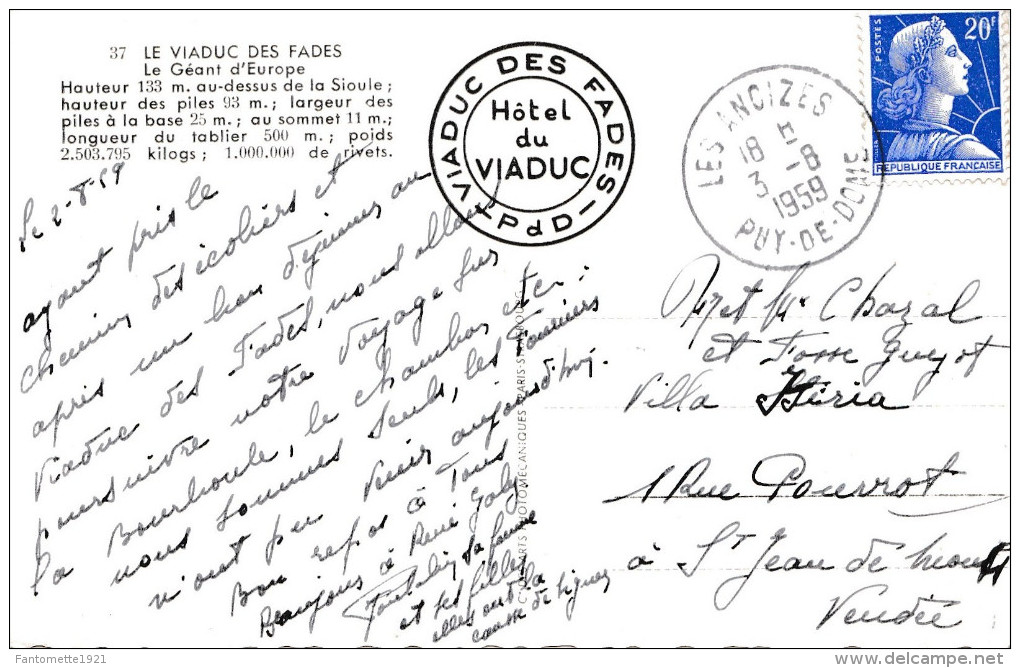 37 LE VIADUC DES FADES
Le Géant d'Europe
Hauteur 133 m. au-dessus de la Sioule ;
hauteur des piles 93 m. ; largeur des
piles à la base 25 m. ; au sommet 11 m. ;
longueur du tablier 500 m. ; poids
2.503.795 kilogs ; 1.000.000 de rivets.
VIADUC DES FADES
PdD
Hôtel
du
VIADUC
LES ANCIZES
18 H
3 -8
1959
PUY-DE-DOME
POSTES
20F
REPUBLIQUE FRANCAISE
Le 2-8-59
ayant pris le
chemin des écoliers et
après un bon déjeuner au
Viaduc des Fades, nous allons
poursuivre notre voyage sur
la Bourboule, le chambon etc.
nous sommes seuls, les
n'ont pu venir aujourd'hui.
Bon repos à Tous
Beaujour à René Joly
sa femme
et ses filles
elles ont la
M et Me Chazal
et Guyot
Villa
1 Rue Pouvrot
à St Jean de Mont
Vendée
Fantomette1921
delcampe.net